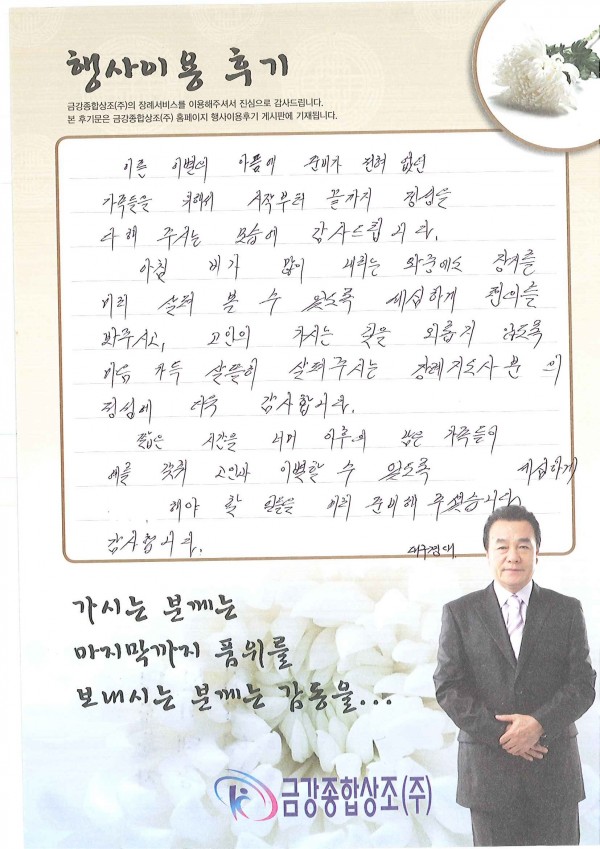 행사이용 후기
금강종합상조(주)의 장례서비스를 이용해주셔서 진심으로 감사드립니다.
본 후기문은 금강종합상조(주) 홈페이지 행사이용후기 게시판에 기재됩니다.
이른 이별의 아픔에 준비가 전혀 없던
가족들을 위해서 시작부터 끝까지 정성을
다해 주시는 모습에 감사드립니다.
아침 비가 많이 내리는 와중에도 장지를
미리 살펴 볼 수 있도록 세심하게 편의를
봐주시고, 고인의 가시는 길을 외롭지 않도록
마음 가득 살뜰히 살펴주시는 장례지도사분의
정성에 더욱 감사합니다.
짧은 시간을 남은 가족들이
예를 갖춰 고인과 이별할 수 있도록 세심하게
해야 할 일들을 미리 준비해 주셨습니다.
감사합니다.
가시는 분께는
마지막까지 품위를
보내시는 분께는 감동을...
금강종합상조(주)